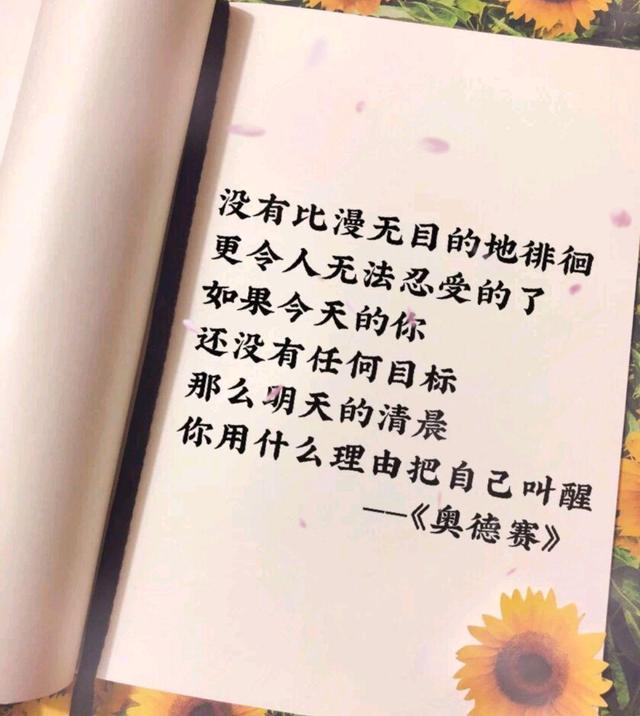 没有比漫无目的地徘徊
更令人无法忍受的了
如果今天的你
还没有任何目标
那么明天的清晨
你用什么理由把自己叫醒
——《奥德赛》